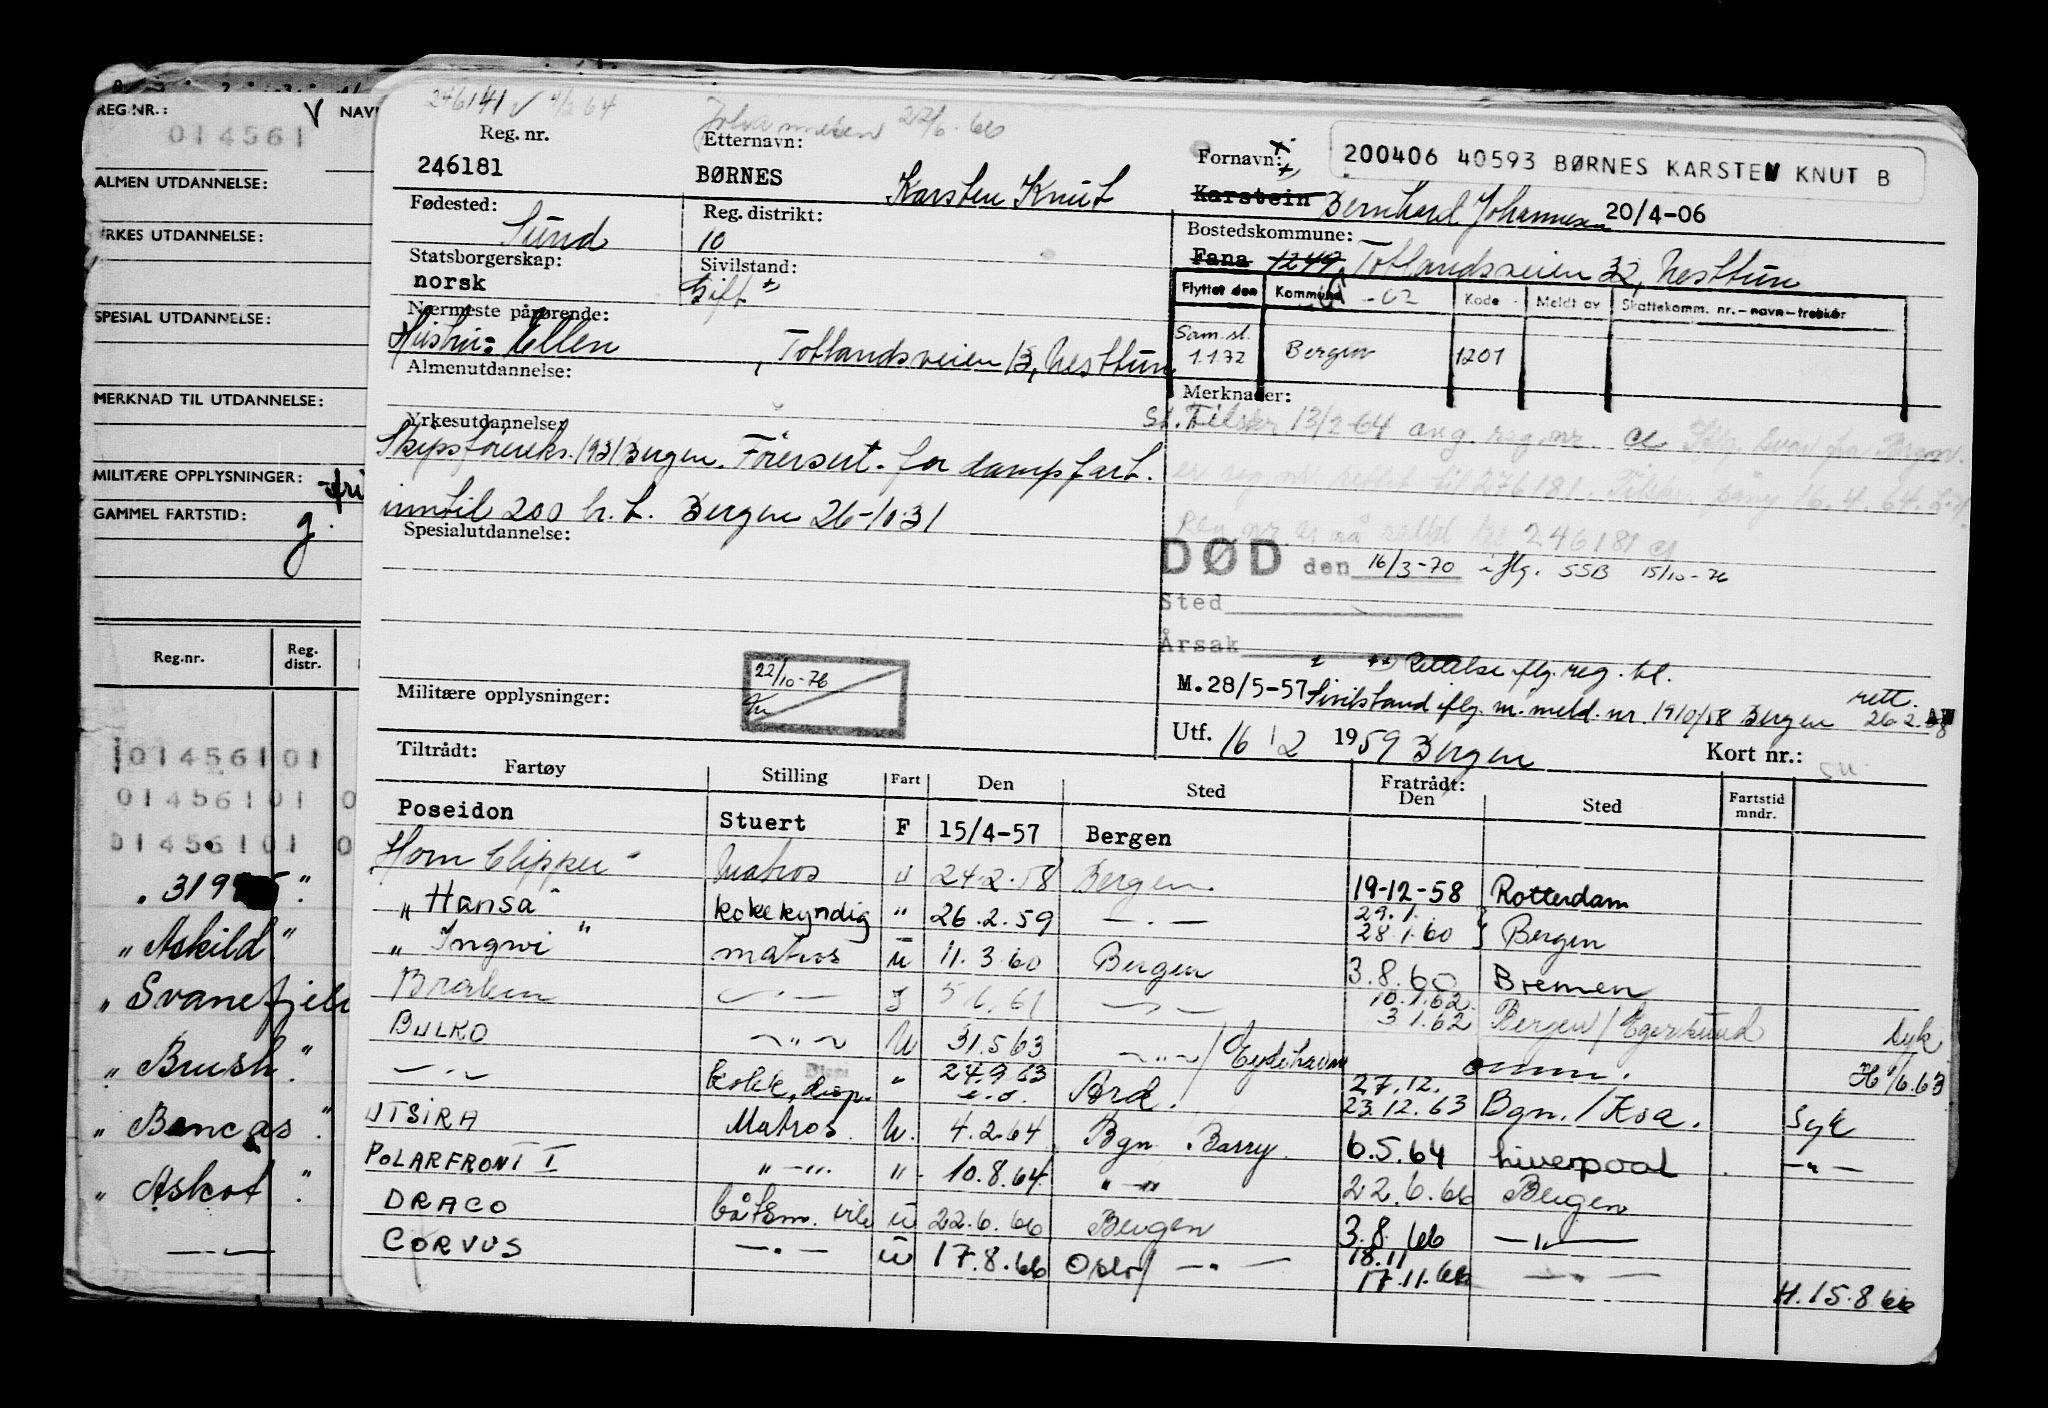 REG.NR.: V NAV
014561
ALMEN UTDANNELSE:
YRKES UTDANNELSE:
SPESIAL UTDANNELSE:
MERKNAD TIL UTDANNELSE:
MILITÆRE OPPLYSNINGER: fri
GAMMEL FARTSTID: g.
Reg.nr. Reg. distr.
01456101
01456101 0
01456101 0
" Askild "
" Svanefjell
" Brush "
" Askot "
246141 ✓ 4/2 64
Johannesen 22/6-66
Reg. nr. Etternavn: Fornavn:
200406 40593 BØRNES KARSTEN KNUT B
246181 BØRNES Karsten Knut Karstein Bernhard Johannesen 20/4-06
Fødested: Sund
Reg. distrikt: 10
Bostedskommune:
Fana 1249 Totlandsveien 32, Nesttun
Statsborgerskap: norsk
Sivilstand: Gift
Flyttet den Kommune -02 Kode Meldt av Skattekomm. nr.-navn-trekkår
Sam. st. 1.1.72 Bergen 1201
Nærmeste pårørende:
Hustru: Ellen, Totlandsveien 13, Nesttun
Almenutdannelse:
Merknader:
St. Tilskr 13/2-64 ang. reg. nr. Iflg. svar fra Bergen
er reg. nr. rettet til 276181. 16.4.64
Reg nr er nå rettet til 246181
Yrkesutdannelse:
Skipsføreeks. 1931 Bergen. Førersert. for dampfart.
inntil 200 br. t. Bergen 26-10-31
Spesialutdannelse:
DØD den 16/3-70 iflg. SSB 15/10-76
Sted
Årsak
Rettelse iflg. reg. bl.
22/10-76
Militære opplysninger:
M.28/5-57 Sivilstand iflg. m. meld. nr. 1910/58 Bergen rett. 26.2.
Utf. 16/2 1959 Bergen Kort nr.:
Tiltrådt: Fartøy Stilling Fart Den Sted Fratrådt: Den Sted Fartstid mndr.
Poseidon Stuert F 15/4-57 Bergen
Horn Clipper Matros u 24.2.58 Bergen. 19-12-58 Rotterdam
" Hansa " kokekyndig " 26.2.59 — . — 29.1. 28.1.60 Bergen
" Ingwi " matros u 11.3.60 Bergen 3.8.60 Bremen
Braken — " — 5.6.61 — " — 10.1.62. 3.1.62 Bergen/Egersund syk
BULKO — " — U 31.5.63 — " — / Eydehavn omm. H 1/6.63
— . — kokk, disp. " 24.9.63 Ard. 27.12. 23.12.63 Bgn./Ksa. syk
UTSIRA Matros. U. 4.2.64 Bgn. Barry. 6.5.64 Liverpool — " —
POLARFRONT I " — " " 10.8.64 " — " 22.6.66 Bergen
DRACO båtsm. vik u 22.6.66 Bergen 3.8.66 — " —
CORVUS — . — u 17.8.66 Oslo/ — . — 18.11 17.11.66 — . — H.15.8 66